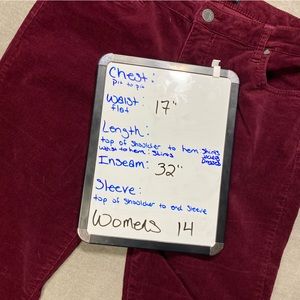 Chest:
pit to pit
Waist: 17"
flat
Length:
top of shoulder to hem: shirts
waist to hem: skirts
Inseam: 32"
Sleeve:
top of shoulder to end sleeve
Womens 14